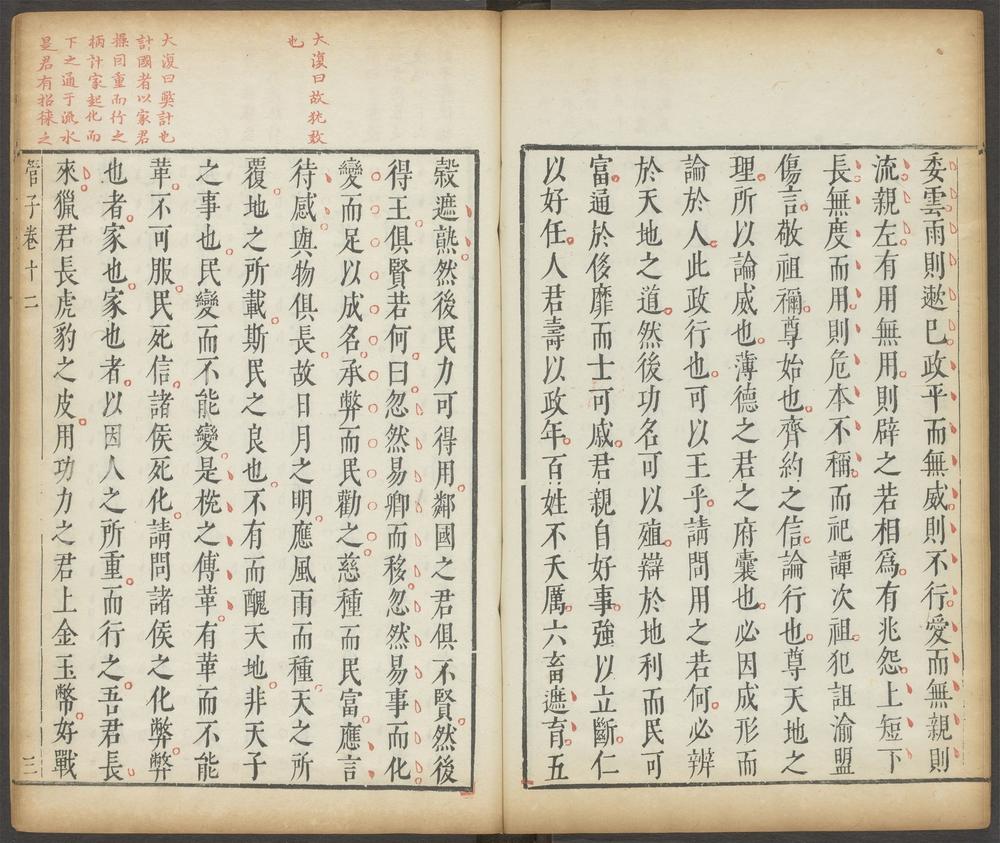 委雲雨則遬已政平而無威則不行愛而無親則
流親左有用無用則辟之若相爲有兆怨上短下
長無度而用則危本不稱而祀譚次祖犯詛渝盟
傷言敬祖禰尊始也齊約之信論行也尊天地之
理所以論威也薄德之君之府囊也必因成形而
論於人此政行也可以王乎請問用之若何必辨
於天地之道然後功名可以殖辯於地利而民可
富通於侈靡而士可戚君親自好事強以立斷仁
以好任人君壽以政年百姓不夭厲六畜遮育五
大復曰故犹数
也
穀遮熟然後民力可得用鄰國之君俱不賢然後
得王俱賢若何曰忽然易卿而移忽然易事而化
變而足以成名承弊而民勸之慈種而民富應言
待感與物俱長故日月之明應風雨而種天之所
覆地之所載斯民之良也不有而醜天地非天子
之事也民變而不能變是梲之傅革有革而不能
革不可服民死信諸侯死化請問諸侯之化弊弊
也者家也家也者以因人之所重而行之吾君長
來獵君長虎豹之皮用功力之君上金玉幣好戰
大復曰獘計也
計國者以家君
操因重而行之
柄計家起化而
下之通于流水
是君有招徠之
管子卷十二
三